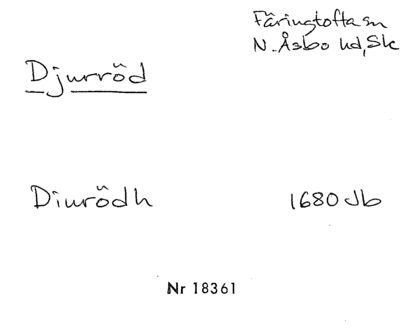 Färingtofta sn
N. Åsbo hd, Sk
Djurröd
Diurödh 1680 Jb
Nr 18361